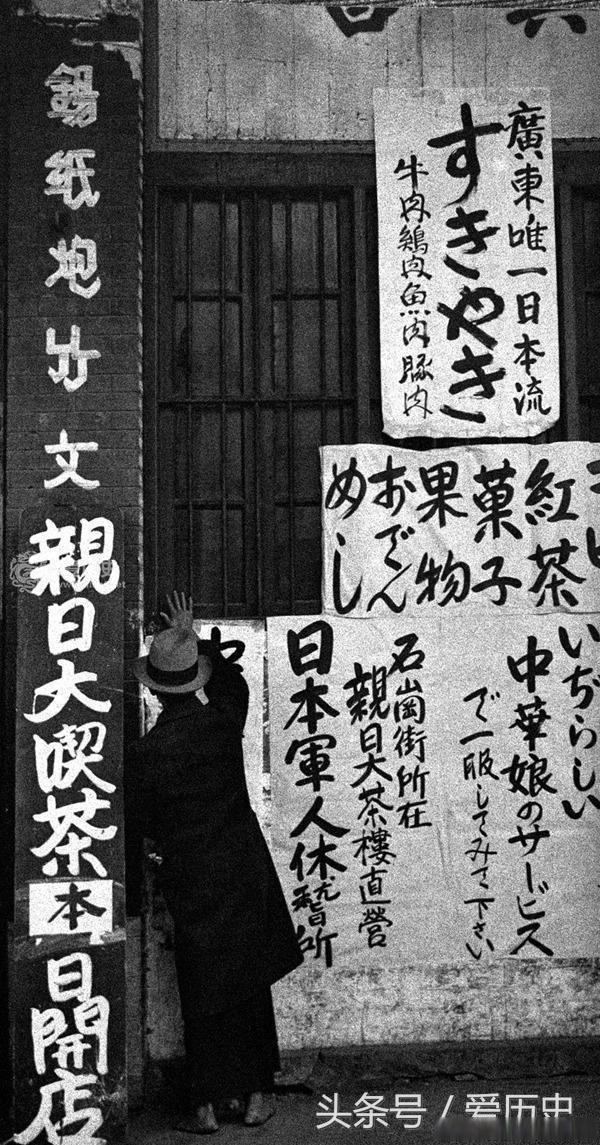 廣東唯一日本流
すきやき
牛肉鶏肉魚肉豚肉
紅茶
菓子
果物
おでん
めし
いぢらしい
中華娘のサービス
で一服してみて下さい
石崗街所在
親日大茶樓直營
日本軍人休憩所
錫纸炮竹文
親日大喫茶本日開店
头条号 / 爱历史